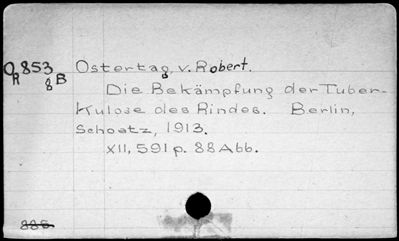 O853 Ostertag, v. Robert.
R 8B
Die Bekämpfung der Tuber-
Kulose des Rindes. Berlin,
Schoetz, 1913.
XII, 591 p. 88 Abb.
886